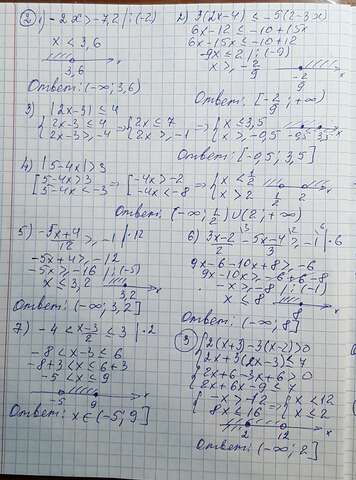 ② 1) -2x > -7,2 | :(-2)
x < 3,6
3,6 x
Ответ: (-∞; 3,6)
2) 3(2x-4) ≤ -5(2-3x)
6x-12 ≤ -10+15x
6x-15x ≤ -10+12
-9x ≤ 2 | :(-9)
x ≥ -2/9
-2/9 x
Ответ: [-2/9; +∞)
3) |2x-3| ≤ 4
{2x-3 ≤ 4 {2x ≤ 7 {x ≤ 3,5
{2x-3 ≥ -4 {2x ≥ -1 {x ≥ -0,5 -0,5 3,5 x
Ответ: [-0,5; 3,5]
4) |5-4x| > 3
[5-4x > 3 [-4x > -2 [x < 1/2
[5-4x < -3 [-4x < -8 [x > 2 1/2 2 x
Ответ: (-∞; 1/2) U (2; +∞)
5) -5x+4/12 ≥ -1 | ·12
-5x+4 ≥ -12
-5x ≥ -16 | :(-5)
x ≤ 3,2
3,2 x
Ответ: (-∞; 3,2]
6) 3x-2/2 \3 - 5x-4/3 \2 ≥ -1 \6 | ·6
9x-6-10x+8 ≥ -6
9x-10x ≥ -6+6-8
-x ≥ -8 | :(-1)
x ≤ 8
8
Ответ: (-∞; 8]
7) -4 < x-3/2 ≤ 3 | ·2
-8 < x-3 ≤ 6
-8+3 < x ≤ 6+3
-5 < x ≤ 9
-5 9 x
Ответ: x ∈ (-5; 9]
③ {2(x+3)-3(x-2) > 0
{2x+3(2x-3) ≤ 7
{2x+6-3x+6 > 0
{2x+6x-9 ≤ 7
{-x > -12 {x < 12
{8x ≤ 16 {x ≤ 2
2 12 x
Ответ: (-∞; 2]